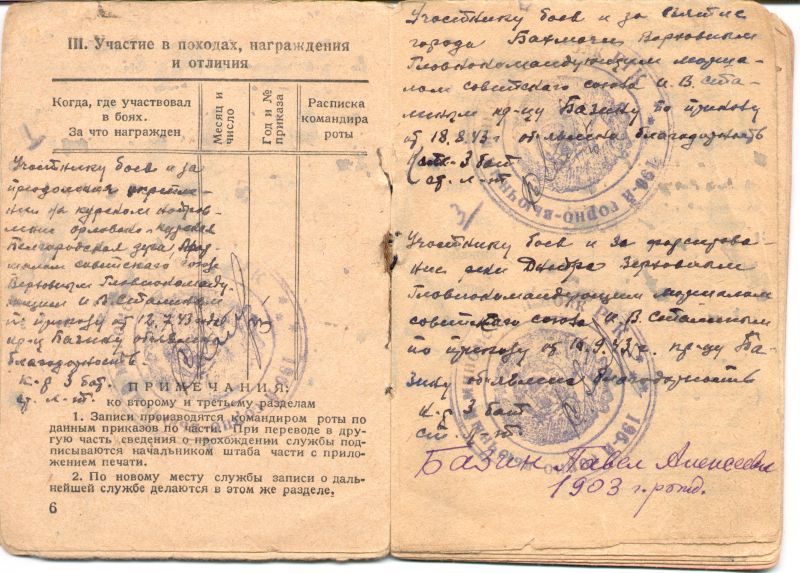 III. Участие в походах, награждения
и отличия
Когда, где участвовал
в боях.
За что награжден
Месяц и
число
Год и №
приказа
Расписка
командира
роты
Участнику боев и за
на курском
орловско-курская
советского союзе
Верховным Главнокоманду
и В. Сталиным
по приказу от 12.7.43 года
кр-цу Базину объявлена
благодарность.
К-р 3 бат.
ст. л-т.
ПРИМЕЧАНИЯ:
ко второму и третьему разделам
1. Записи производятся командиром роты по
данным приказов по части. При переводе в дру-
гую часть сведения о прохождении службы под-
писываются начальником штаба части с прило-
жением печати.
2. По новому месту службы записи о даль-
нейшей службе делаются в этом же разделе.
6
Участнику боев и за взятие
города Бахмачи Верховным
Главнокомандующим марша-
лом советского союза И. В. Ста-
линым кр-цу Базину по приказу
от 18.8.43 г объявлена благодарность
3 бат
ст. л-т.
Участнику боев и за форсирова-
ние реки Днепра Верховным
Главнокомандующим маршалом
советского союза И. В. Сталиным
по приказу от 9.43 г. кр-цу Ба-
зину объявлена благодарность
К-р 3 бат
ст. л-т.
196-й ГОРНО-ВЬЮЧН
Базин Павел Алексеевич
1903 г. рожд.